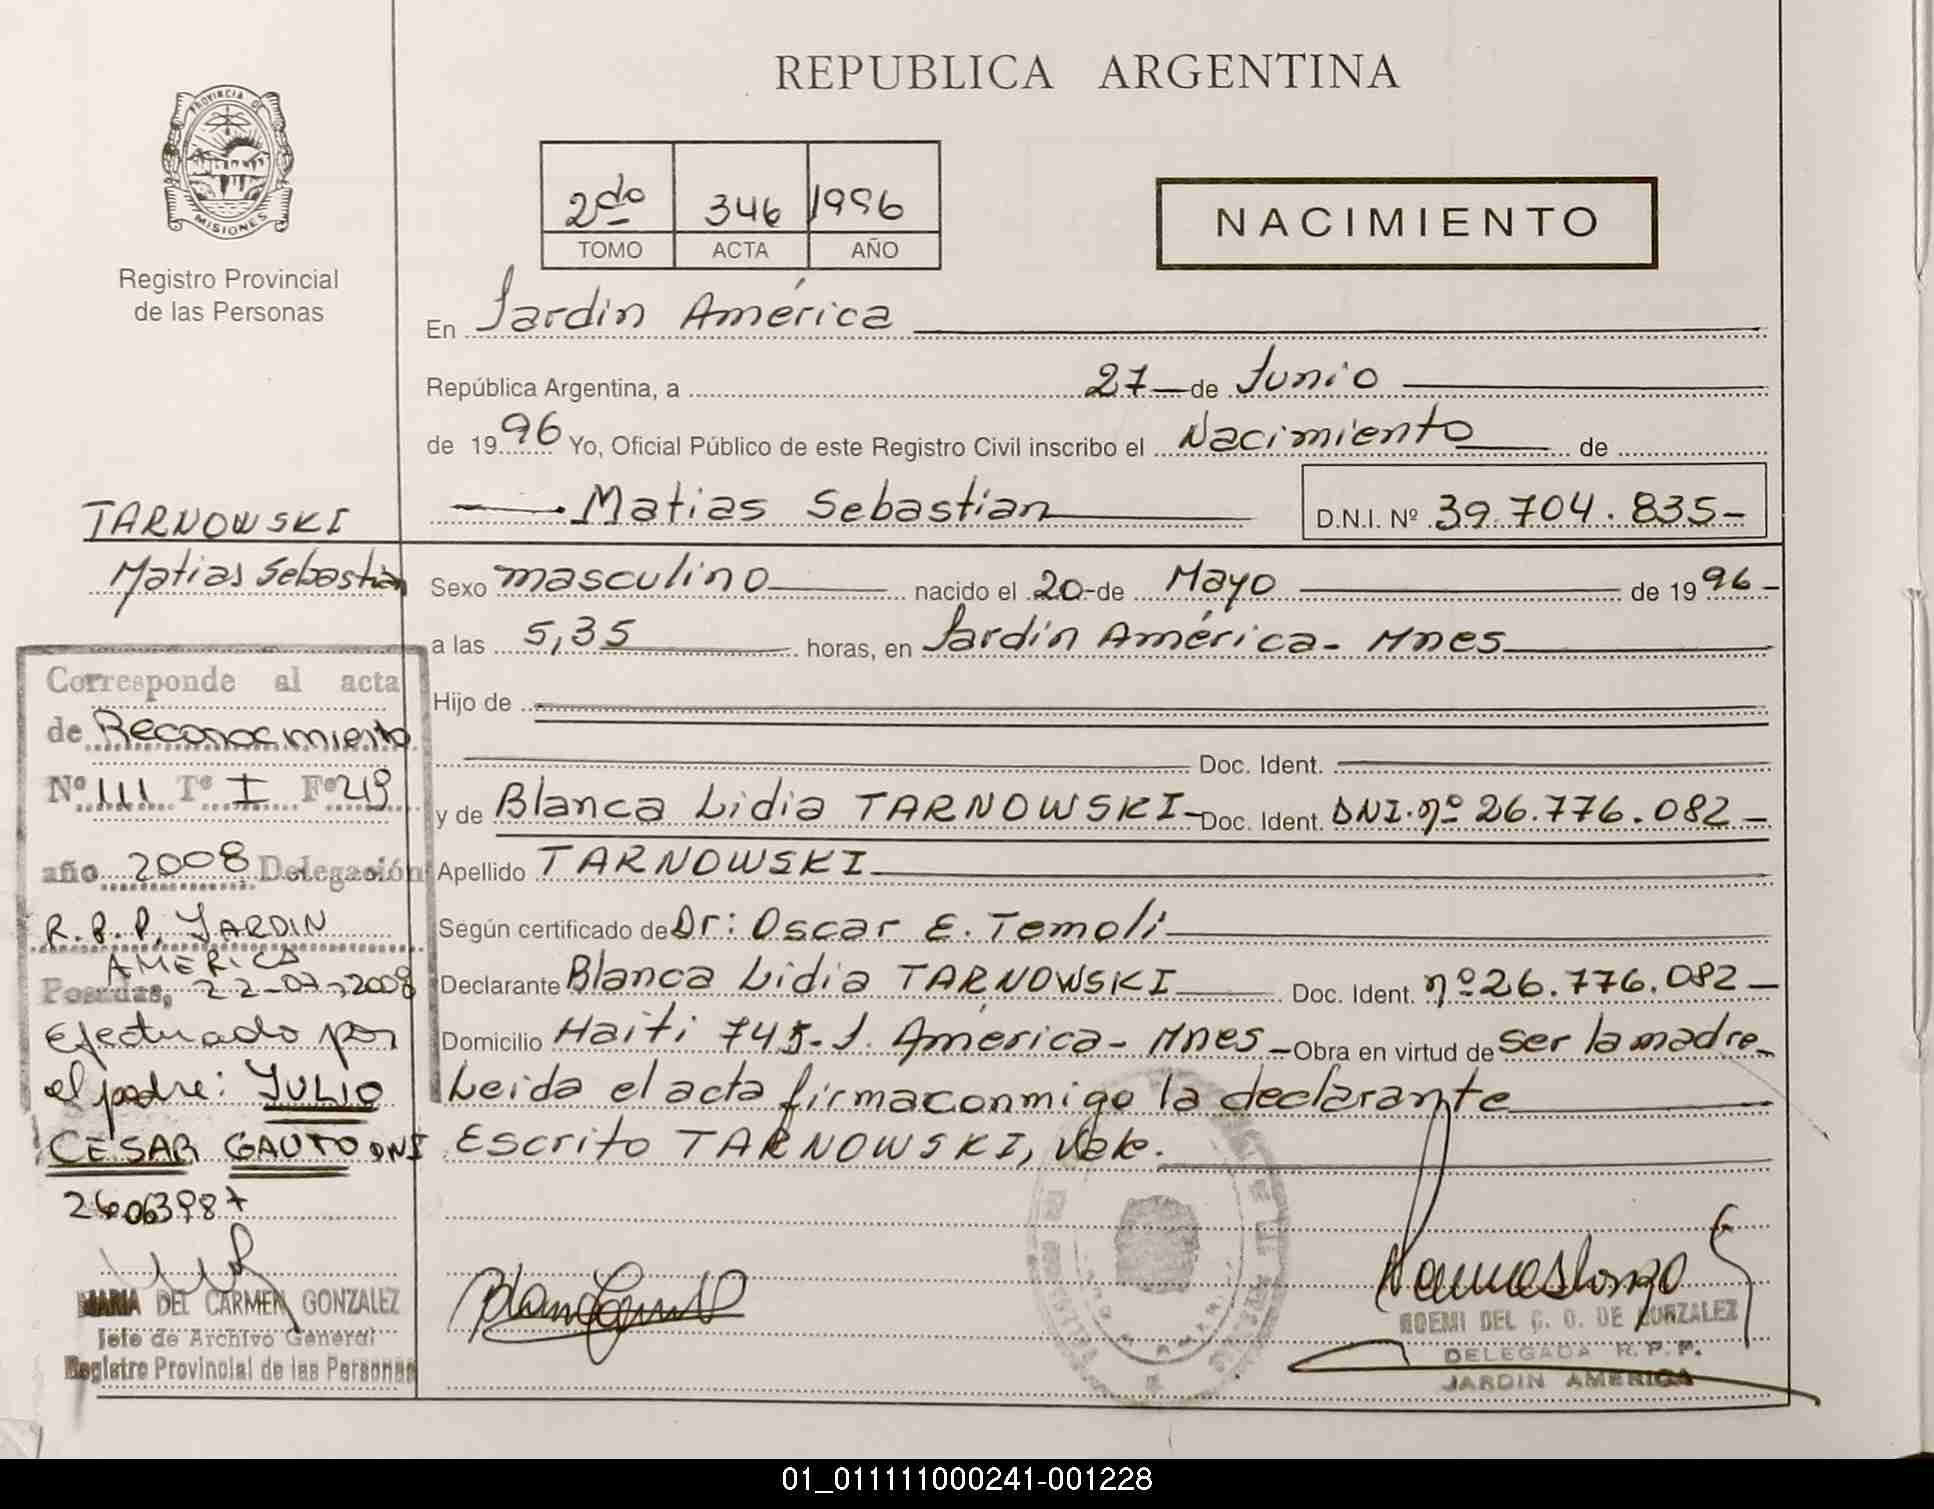 REPUBLICA ARGENTINA
PROVINCIA DE
MISIONES
Registro Provincial
de las Personas
2do 346 1996
TOMO ACTA AÑO
NACIMIENTO
En Jardin América
República Argentina, a 27 de Junio
de 1996 Yo, Oficial Público de este Registro Civil inscribo el Nacimiento de
Matias Sebastian D.N.I. Nº 39.704.835-
TARNOWSKI
Matias Sebastian
Sexo masculino nacido el 20-de Mayo de 1996-
a las 5,35 horas, en Jardin América- Mnes
Hijo de
Doc. Ident.
y de Blanca Lidia TARNOWSKI- Doc. Ident. DNI.nº 26.776.082-
Apellido TARNOWSKI
Según certificado de Dr: Oscar E. Temoli
Declarante Blanca Lidia TARNOWSKI Doc. Ident. nº26.776.082-
Domicilio Haiti 745-J. América- Mnes- Obra en virtud de ser la madre-
Leida el acta firma conmigo la declarante
Escrito TARNOWSKI, Vale.
Corresponde al acta
de Reconocimiento
Nº 111 Tº I Fº 219
año 2008 Delegación
R.P.P. JARDIN
AMERICA
Posadas, 22-07-2008
Efectuado por
el padre: JULIO
CESAR GAUTO DNI
26063987
MARIA DEL CARMEN GONZALEZ
Jefe de Archivo General
Registro Provincial de las Personas
NOEMI DEL C. O. DE GONZALEZ
DELEGADA R.P.P.
JARDIN AMERICA
01_011111000241-001228